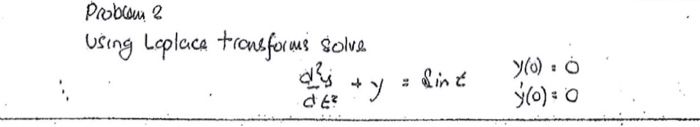 Problem 2
Using Laplace transforms solve
d²y/dt² + y = sin t y(0) = 0
ẏ(0) = 0